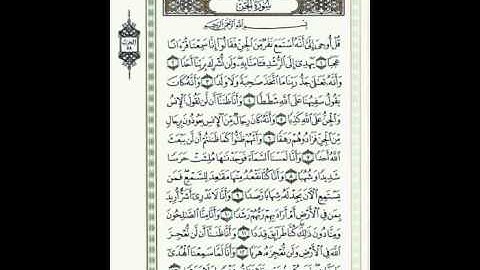 سُورَةُ الْجِنِّ
بِسْمِ اللَّهِ الرَّحْمَٰنِ الرَّحِيمِ
قُلْ أُوحِيَ إِلَيَّ أَنَّهُ اسْتَمَعَ نَفَرٌ مِّنَ الْجِنِّ فَقَالُوا إِنَّا سَمِعْنَا قُرْآنًا
عَجَبًا ١ يَهْدِي إِلَى الرُّشْدِ فَآمَنَّا بِهِ وَلَن نُّشْرِكَ بِرَبِّنَا أَحَدًا ٢
وَأَنَّهُ تَعَالَىٰ جَدُّ رَبِّنَا مَا اتَّخَذَ صَاحِبَةً وَلَا وَلَدًا ٣ وَأَنَّهُ كَانَ
يَقُولُ سَفِيهُنَا عَلَى اللَّهِ شَطَطًا ٤ وَأَنَّا ظَنَنَّا أَن لَّن تَقُولَ الْإِنسُ
وَالْجِنُّ عَلَى اللَّهِ كَذِبًا ٥ وَأَنَّهُ كَانَ رِجَالٌ مِّنَ الْإِنسِ يَعُوذُونَ بِرِجَالٍ
مِّنَ الْجِنِّ فَزَادُوهُمْ رَهَقًا ٦ وَأَنَّهُمْ ظَنُّوا كَمَا ظَنَنتُمْ أَن لَّن يَبْعَثَ
اللَّهُ أَحَدًا ٧ وَأَنَّا لَمَسْنَا السَّمَاءَ فَوَجَدْنَاهَا مُلِئَتْ حَرَسًا
شَدِيدًا وَشُهُبًا ٨ وَأَنَّا كُنَّا نَقْعُدُ مِنْهَا مَقَاعِدَ لِلسَّمْعِ فَمَن
يَسْتَمِعِ الْآنَ يَجِدْ لَهُ شِهَابًا رَّصَدًا ٩ وَأَنَّا لَا نَدْرِي أَشَرٌّ أُرِيدَ
بِمَن فِي الْأَرْضِ أَمْ أَرَادَ بِهِمْ رَبُّهُمْ رَشَدًا ١٠ وَأَنَّا مِنَّا الصَّالِحُونَ
وَمِنَّا دُونَ ذَٰلِكَ كُنَّا طَرَائِقَ قِدَدًا ١١ وَأَنَّا ظَنَنَّا أَن لَّن نُّعْجِزَ
اللَّهَ فِي الْأَرْضِ وَلَن نُّعْجِزَهُ هَرَبًا ١٢ وَأَنَّا لَمَّا سَمِعْنَا الْهُدَىٰ